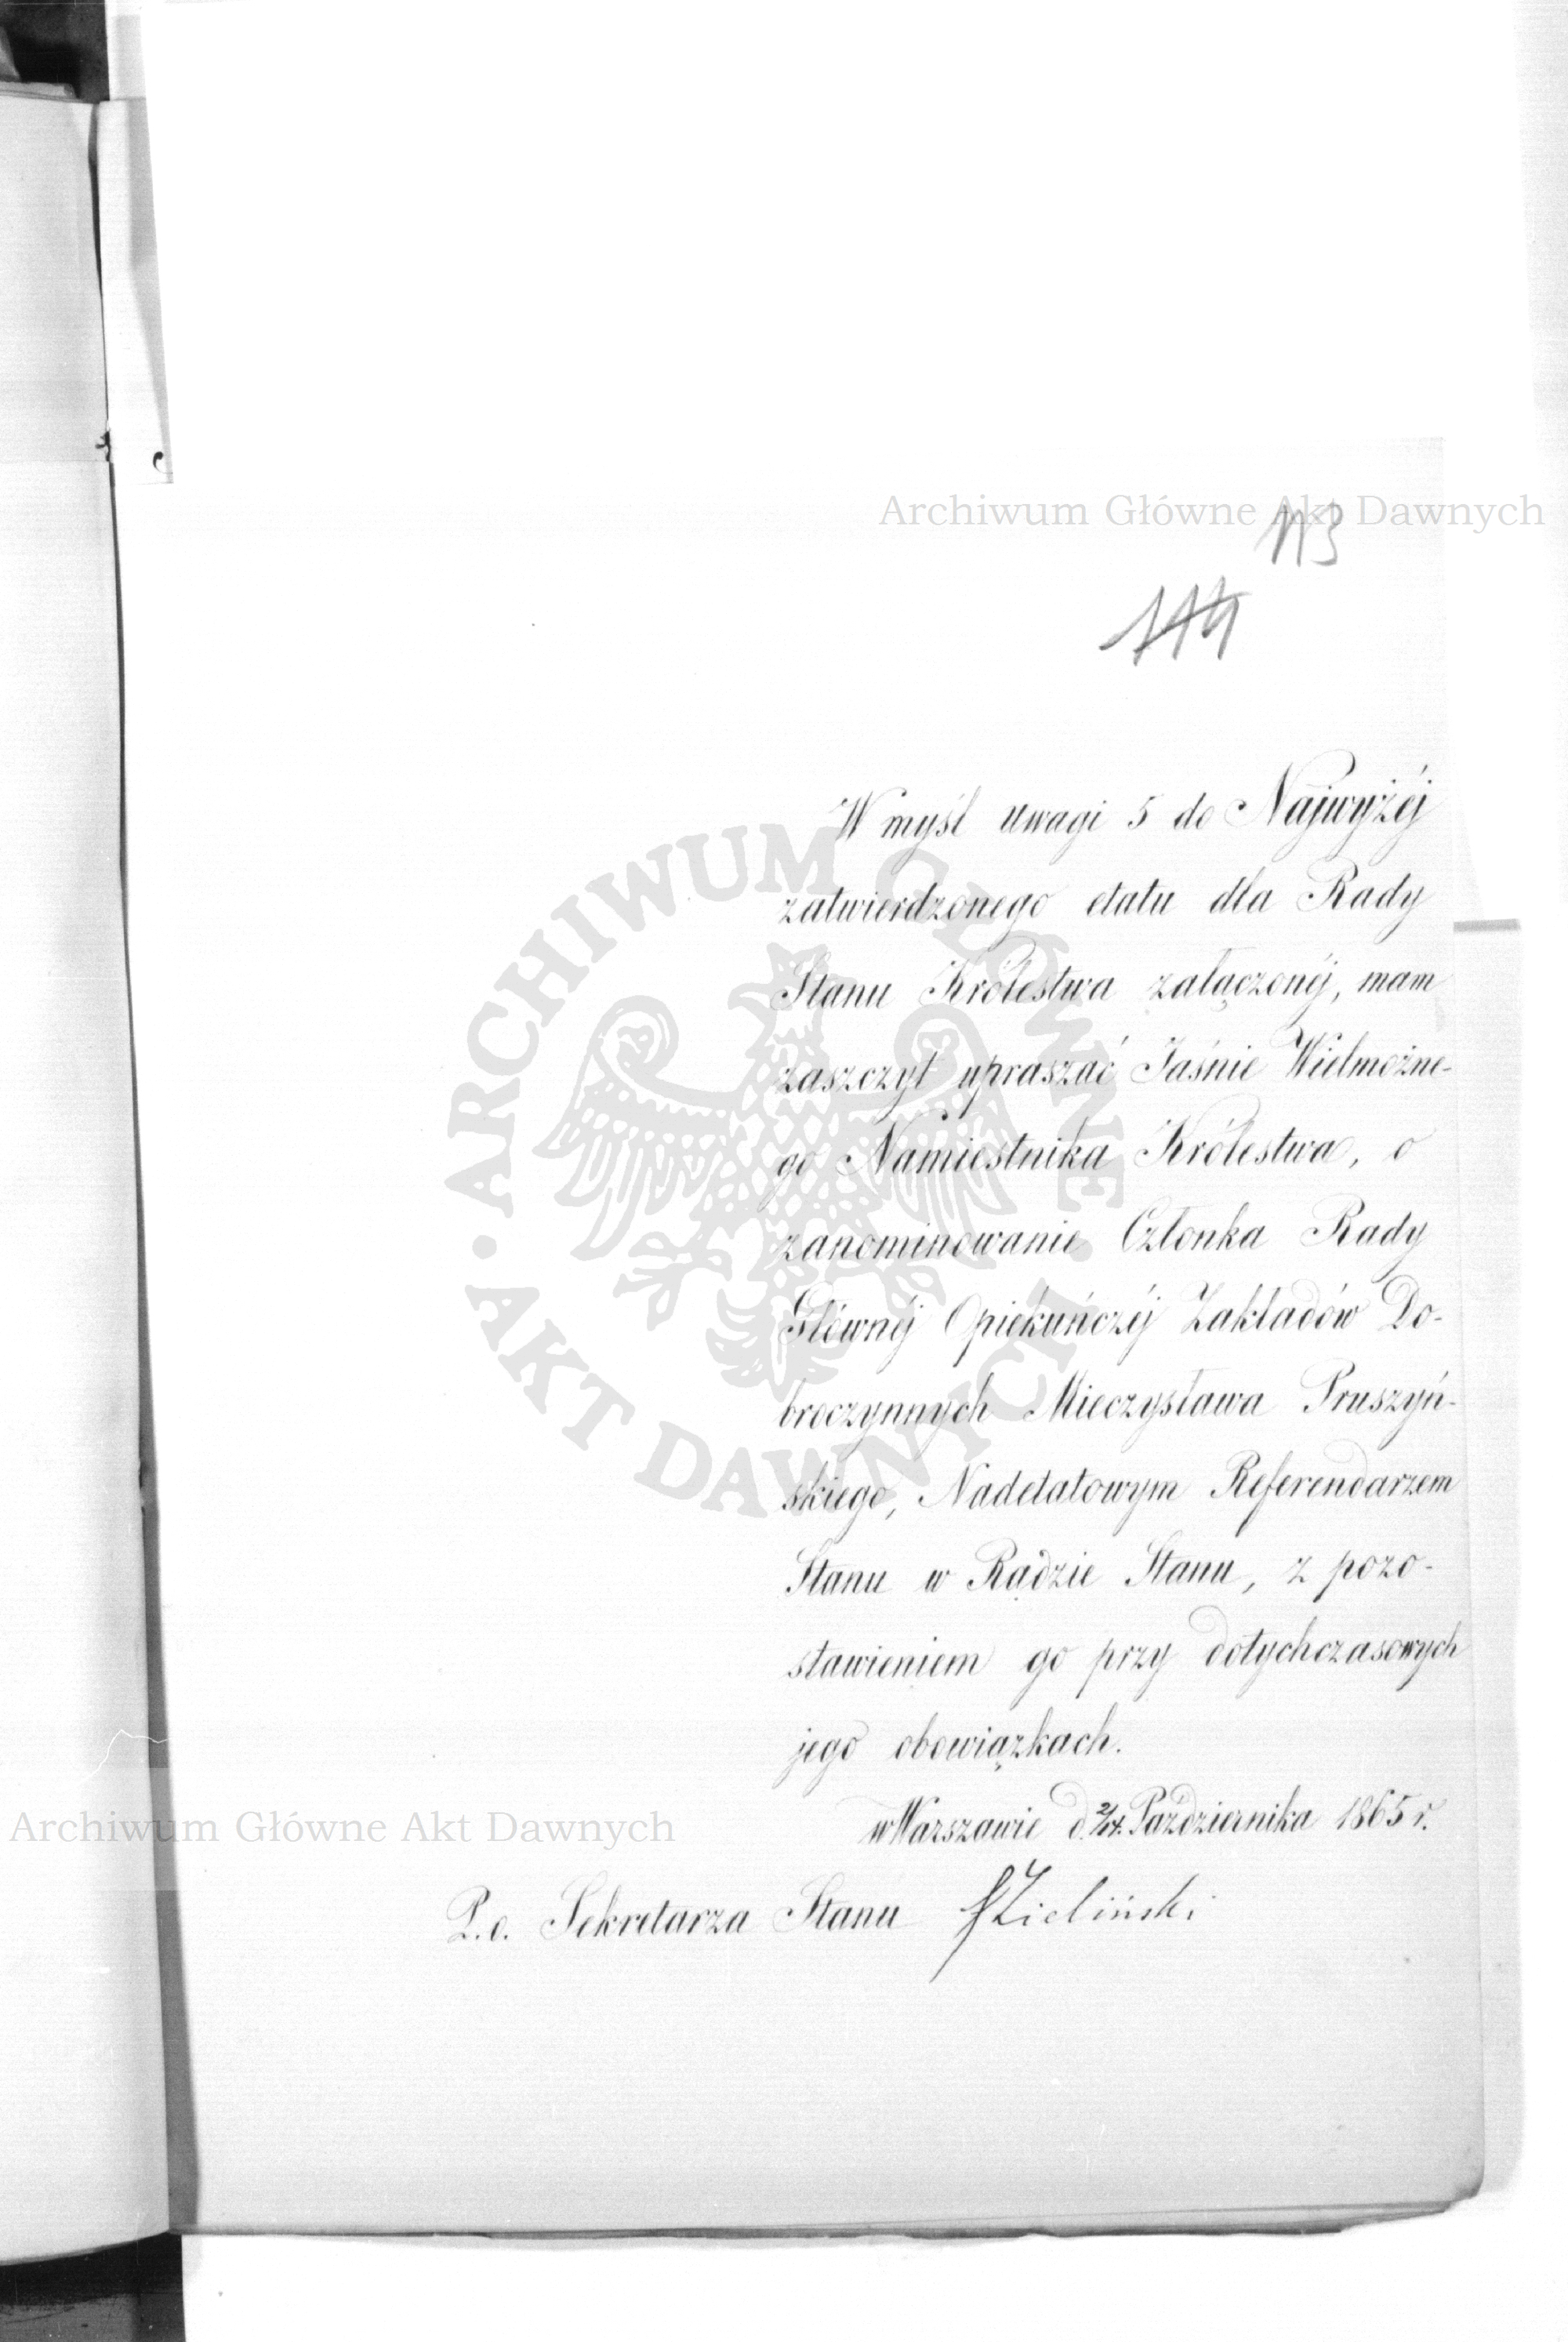 Archiwum Główne Akt Dawnych
113
114
W myśl uwagi 5 do Najwyżéj
zatwierdzonego etatu dla Rady
Stanu Królestwa załączonéj, mam
zaszczyt upraszać Jaśnie Wielmożne-
go Namiestnika Królestwa, o
zanominowanie Członka Rady
Głównéj Opiekuńczéj Zakładów Do-
broczynnych Mieczysława Pruszyń-
skiego, Nadetatowym Referendarzem
Stanu w Radzie Stanu, z pozo-
stawieniem go przy dotychczasowych
jego obowiązkach.
w Warszawie d. 2/14 Października 1865 r.
P.o. Sekretarza Stanu Zieliński
ARCHIWUM GŁÓWNE AKT DAWNYCH
Archiwum Główne Akt Dawnych